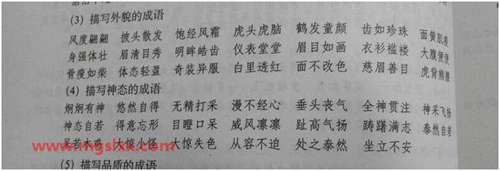 (3) 描写外貌的成语
风度翩翩 披头散发 饱经风霜 虎头虎脑 鹤发童颜 齿如珍珠 面黄肌瘦
身强体壮 眉清目秀 明眸皓齿 仪表堂堂 眉目如画 衣衫褴褛 大腹便便
骨瘦如柴 体态轻盈 奇装异服 白里透红 面不改色 慈眉善目 虎背熊腰
(4) 描写神态的成语
炯炯有神 悠然自得 无精打采 漫不经心 垂头丧气 全神贯注 神采飞扬
神态自若 得意忘形 目瞪口呆 威风凛凛 趾高气扬 踌躇满志 泰然自若
大惊小怪 大惊失色 从容不迫 处之泰然 坐立不安
(5) 描写品质的成语